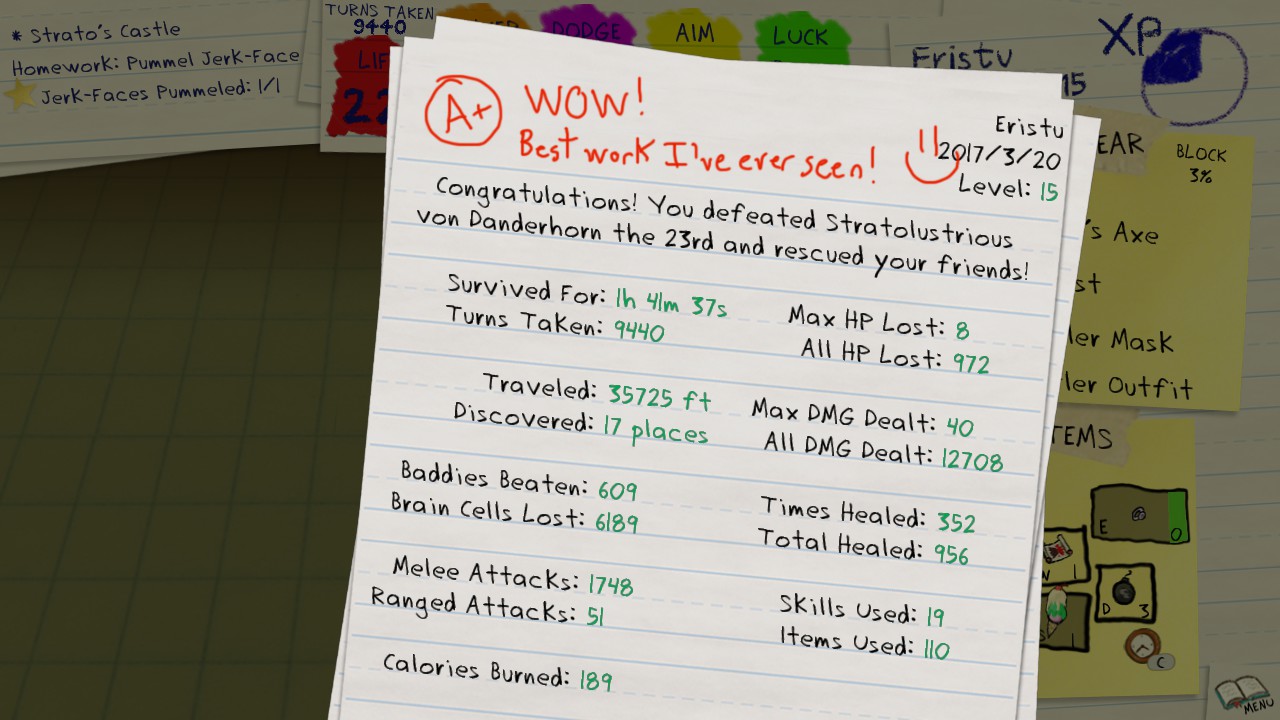 * Strato's Castle
Homework: Pummel Jerk-Face
Jerk-Faces Pummeled: 1/1
TURNS TAKEN
9440
DODGE
AIM
LUCK
Eristu
15
XP
A+
WOW!
Best work I've ever seen!
Eristu
2017/3/20
Level: 15
Congratulations! You defeated Stratolustrious
von Danderhorn the 23rd and rescued your friends!
Survived For: 1h 41m 37s
Turns Taken: 9440
Max HP Lost: 8
All HP Lost: 972
Traveled: 35725 ft
Discovered: 17 places
Max DMG Dealt: 40
All DMG Dealt: 12708
Baddies Beaten: 609
Brain Cells Lost: 6189
Times Healed: 352
Total Healed: 956
Melee Attacks: 1748
Ranged Attacks: 51
Skills Used: 19
Items Used: 110
Calories Burned: 189
EAR
BLOCK
3%
's Axe
st
ler Mask
ler Outfit
TEMS
E
0
D 3
C
MENU